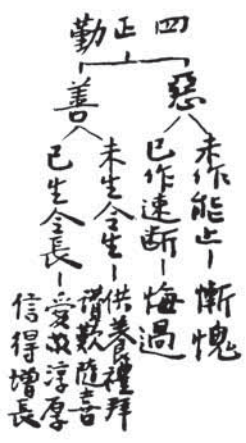 四正勤
惡
未作能止－慚愧
已作速斷－悔過
善
未生令生－供養禮拜
讃歎隨喜
已生令長－愛敬淳厚
信得增長